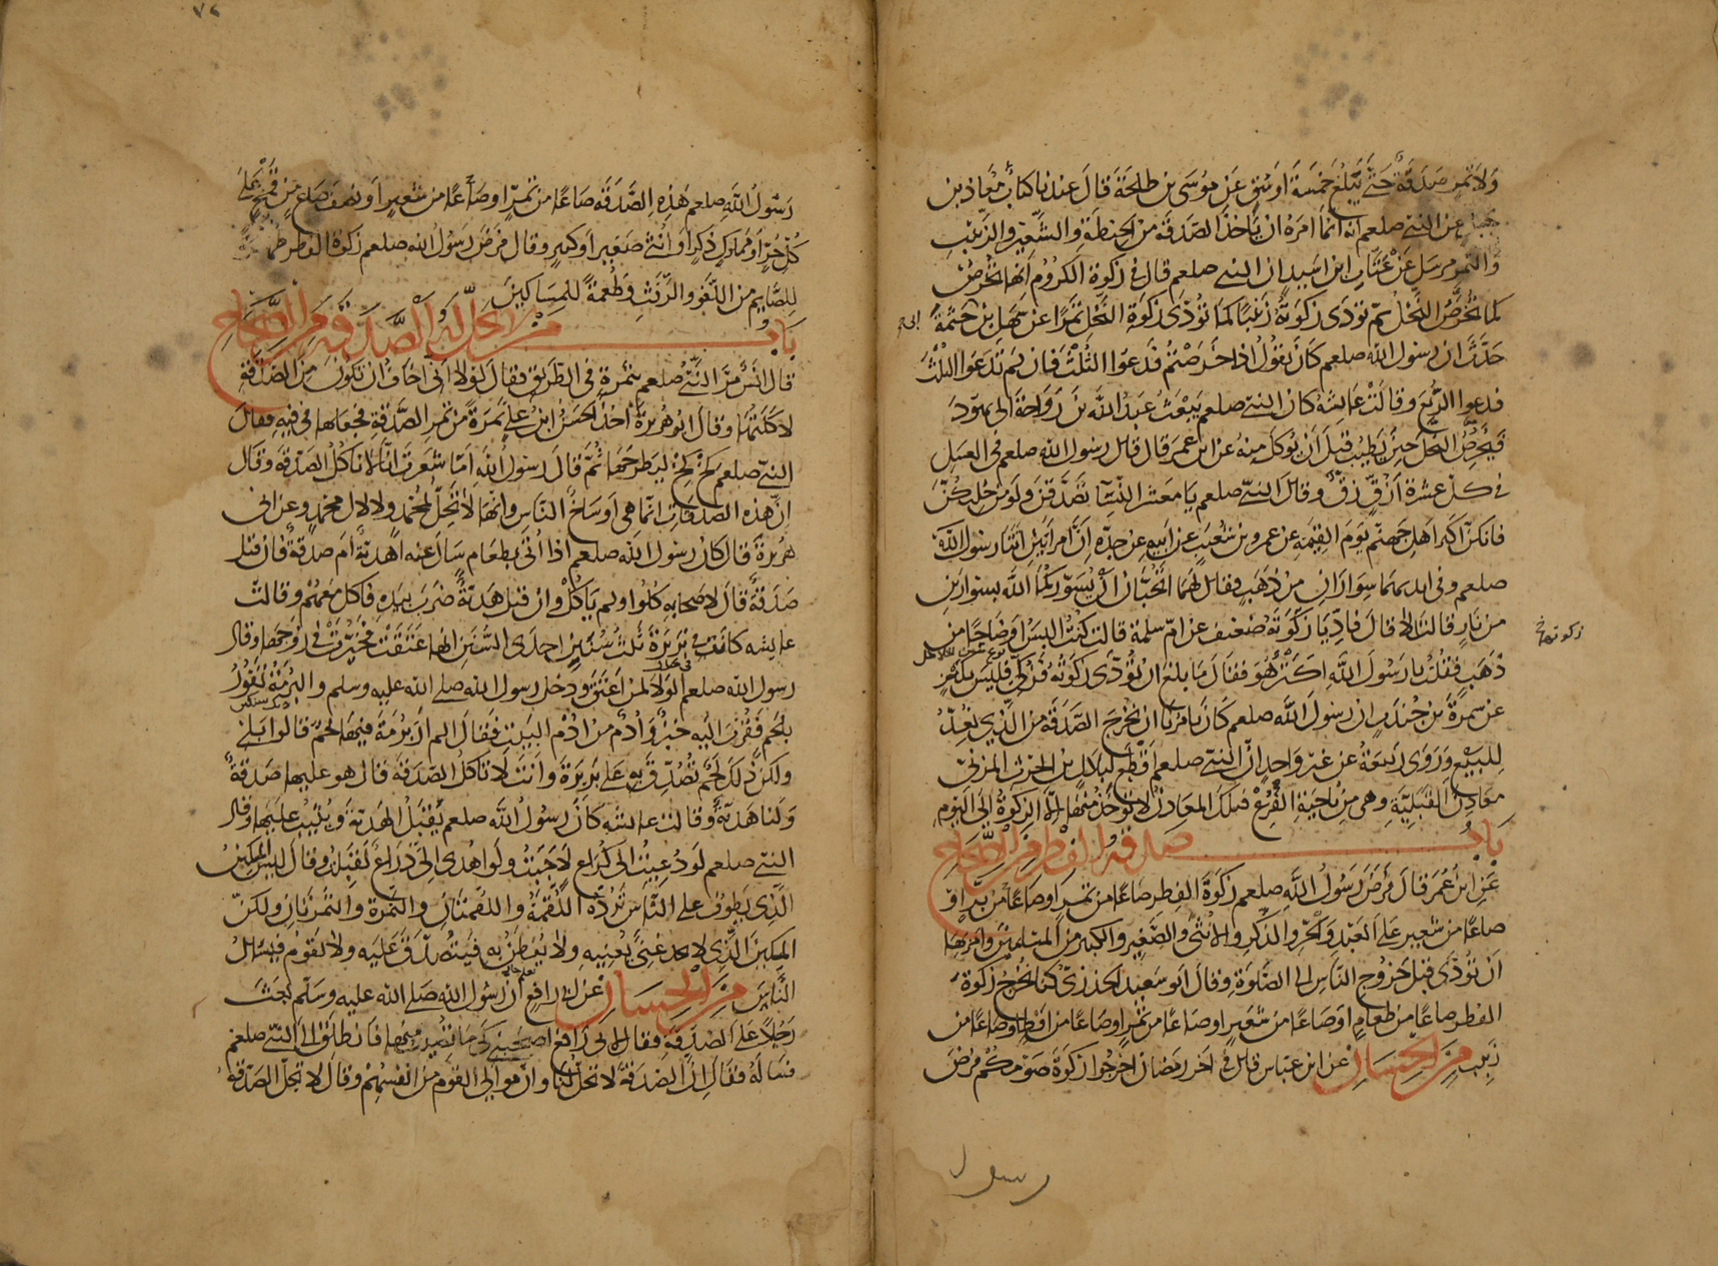 ولا تمر صدقة حتى يبلغ خمسة اوسق عن موسى بن طلحة قال عندنا كتاب معاذ بن
جبل عن النبي صلعم انه انما امره ان ياخذ الصدقة من الحنطة والشعير والزبيب
والتمر مرسل عن عتاب ابن اسيد ان النبي صلعم قال في زكوة الكروم انها تخرص
كما تخرص النخل ثم تودى زكوته زبيبا كما تودى زكوة النخل تمرا عن سهل بن حثمة
ابي
حدث ان رسول الله صلعم كان يقول اذا خرصتم فدعوا الثلث فان لم تدعوا الثلث
فدعوا الربع وقالت عايشة كان النبي صلعم يبعث عبد الله بن رواحة الى يهود
فيخرص النخل حين يطيب قبل ان يوكل منه عن ابن عمر قال قال رسول الله صلعم في العسل
في كل عشرة ازق زق وقال النبي صلعم يا معشر النسا تصدقن ولو من حليكن
فانكن اكثر اهل جهنم يوم القيمة عن عمرو بن شعيب عن ابيه عن جده ان امراتين اتتا رسول الله
صلعم وفي ايديهما سواران من ذهب فقال لهما اتحبان ان يسوركما الله بسوارين
من نار قالتا لا قال فاديا زكوته ضعيف عن ام سلمة قالت كنت البس اوضاحا من
زكوتهما
ذهب فقلت يا رسول الله اكنز هو فقال ما بلغ ان تودى زكوته فزكي فليس بكنز
عن سمرة بن جندب ان رسول الله صلعم كان يامرنا ان نخرج الصدقة من الذي نعد
للبيع وروى ربيعة عن غير واحد ان النبي صلعم اقطع لبلال بن الحرث المزني
معادن القبلية وهي من ناحية الفرع فتلك المعادن لا توخذ منها الا الزكوة الى اليوم
باب صدقة الفطر من الصحاح
عن ابن عمر قال فرض رسول الله صلعم زكوة الفطر صاعا من تمر او صاعا من بر او
صاعا من شعير على العبد والحر والذكر والانثى والصغير والكبير من المسلمين وامر بها
ان تودى قبل خروج الناس الى الصلوة وقال ابو سعيد الخدري كنا نخرج زكوة
الفطر صاعا من طعام او صاعا من شعير او صاعا من تمر او صاعا من اقط او صاعا من
زبيب من الحسان عن ابن عباس قال في اخر رمضان اخرجوا زكوة صومكم فرض
رسول
٧٢
رسول الله صلعم هذه الصدقة صاعا من تمر او صاعا من شعير او نصف صاع من قمح على
كل حر او مملوك ذكر او انثى صغير او كبير وقال فرض رسول الله صلعم زكوة الفطر طهرة
للصايم من اللغو والرفث وطعمة للمساكين
باب من لا تحل له الصدقة من الصحاح
قال انس مر النبي صلعم بتمرة في الطريق فقال لولا اني اخاف ان تكون من الصدقة
لاكلتها وقال ابو هريرة اخذ الحسن ابن علي تمرة من تمر الصدقة فجعلها في فيه فقال
النبي صلعم كخ كخ ليطرحها ثم قال رسول الله اما شعرت انا لا ناكل الصدقة وقال
ان هذه الصدقات انما هي اوساخ الناس وانها لا تحل لمحمد ولا لال محمد وعن ابي
هريرة قال كان رسول الله صلعم اذا اتي بطعام سال عنه اهدية ام صدقة فان قيل
صدقة قال لاصحابه كلوا ولم ياكل وان قيل هدية ضرب بيده فاكل معهم وقالت
عايشه كانت في بريرة ثلث سنن احدى السنن انها عتقت فخيرت في زوجها وقال
رسول الله صلعم الولا لمن اعتق ودخل رسول الله صلى الله عليه وسلم والبرمة تفور
بلحم فقرب اليه خبز وادم من ادم البيت فقال الم ار برمة فيها لحم قالوا بلى
ولكن ذلك لحم تصدق به على بريرة وانت لا تاكل الصدقة قال هو عليها صدقة
ولنا هدية وقالت عايشه كان رسول الله صلعم يقبل الهدية ويثيب عليها وقال
النبي صلعم لو دعيت الى كراع لاجبت ولو اهدي الي ذراع لقبلت وقال ليس المسكين
الذي يطوف على الناس ترده اللقمة واللقمتان والتمرة والتمرتان ولكن
المسكين الذي لا يجد غنى يغنيه ولا يفطن به فيتصدق عليه ولا يقوم فيسال
الناس من الحسان عن ابي رافع ان رسول الله صلى الله عليه وسلم بعث
رجلا على الصدقة فقال لابي رافع اصحبني كي ما تصيب منها فانطلق الى النبي صلعم
فساله فقال ان الصدقة لا تحل لنا وان موالي القوم من انفسهم وقال لا تحل الصدقة